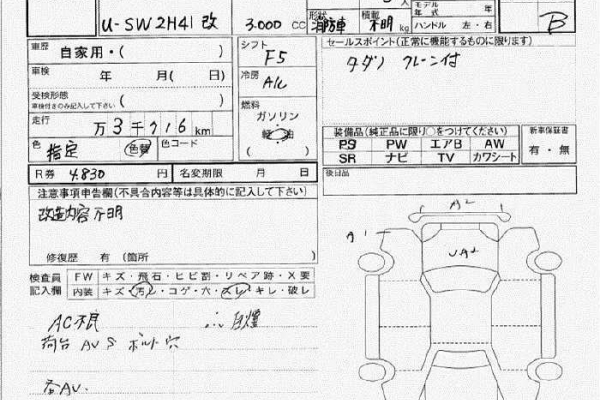 U-SW2H41改 3,000 CC 形状 消防車 積載 不明 kg
モデル年式 年
ハンドル 左・右
B
車歴 自家用・( )
シフト F5
セールスポイント(正常に機能するものに限ります)
タダノ クレーン付
車検 年 月( 日)
冷房 A/C
受検形態 車検付きのみ記入して下さい ( )
燃料 ガソリン・軽油 ( )
走行 万3千716km
色 指定 色替 色コード
装備品(純正品に限り○をつけてください)
新車保証書
PS PW エアB AW
有・無
SR ナビ TV カワシート
R券 4,830 円 名変期限 月 日
後日品
注意事項申告欄(不具合内容等は具体的に記入して下さい)
改造内容不明
修復歴 有(箇所 )
検査員記入欄
FW キズ・飛石・ヒビ割・リペア跡・X要
内装 キズ・汚れ・コゲ・穴・スレ・キレ・破レ
A2
A1
UA2
AC不良
荷台 AUS ボルト穴
各AU.